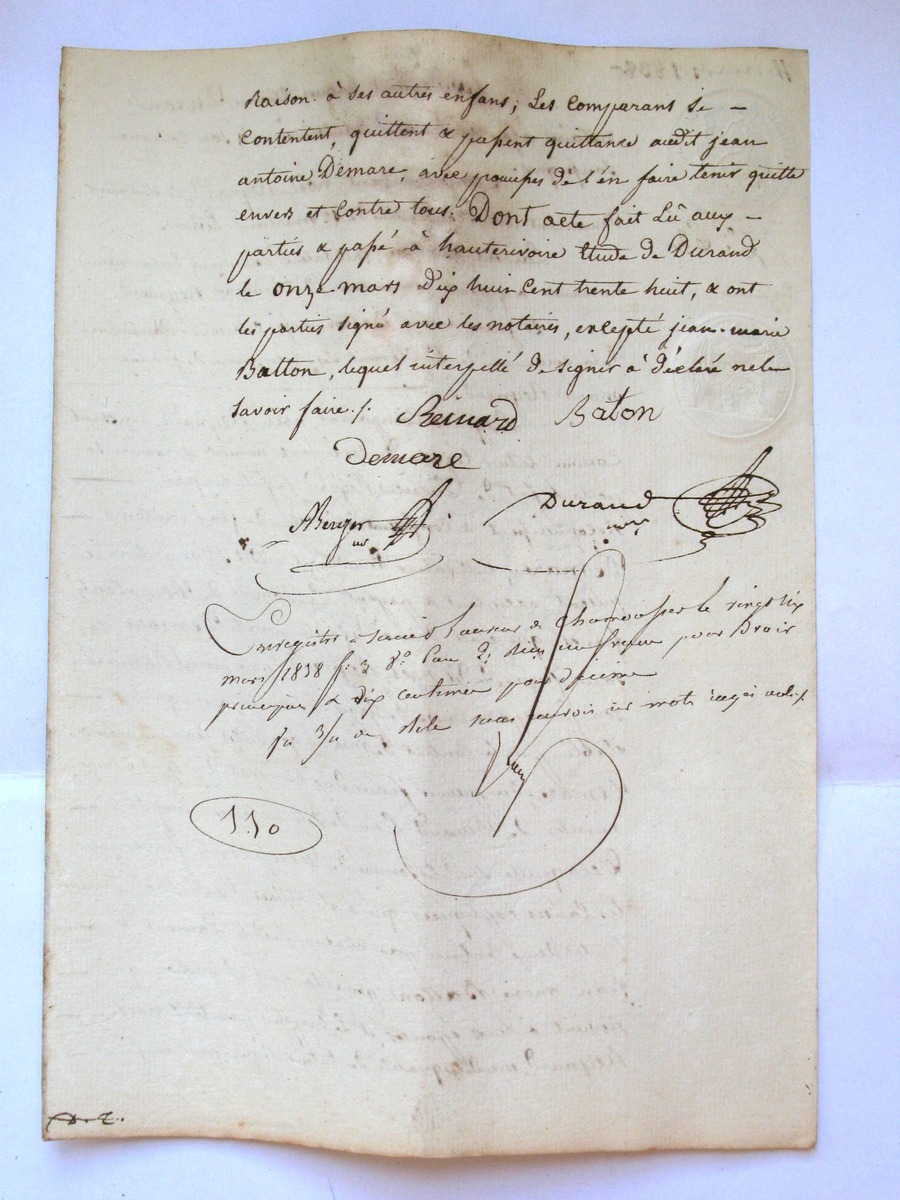 Raison à ses autres enfans; Les Comparans se –
Contentent, quittent & passent quittance audit jean
antoine Demare, avec promesses de l'en faire tenir quitte
envers et Contre tous. Dont acte fait Lû aux –
parties & passé à hauterivoire Etude de Durand
le onze mars Dix huit Cent trente huit, & ont
les parties signé avec les notaires, excepté jean-marie
Batton, lequel interpellé de signer à déclaré ne le
savoir faire./.
Reinard Baton
Demare
Berger DURAND
nre
Enregistré à le vingt six
mars 1838 f. 3 vo. Case 2; un franc pour Droit
principal & dix centimes pour décime
mots rayés nuls
110
D. Z.